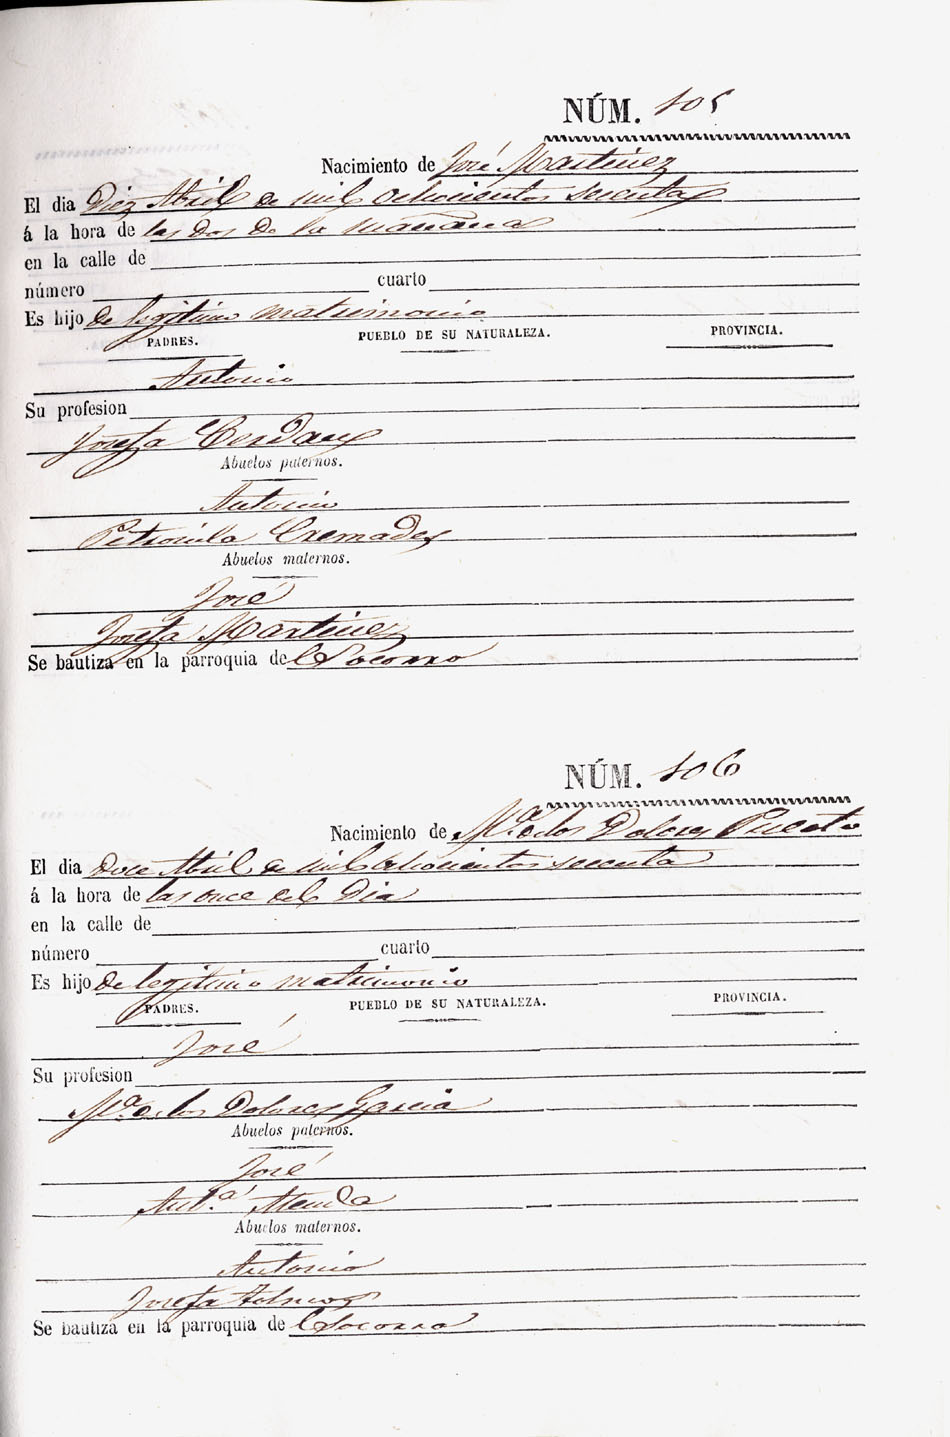 NÚM. 105
Nacimiento de José Martinez
El dia Diez Abril de mil ochocientos secenta
á la hora de las dos de la mañana
en la calle de
número cuarto
Es hijo de legitimo matrimonio
PADRES. PUEBLO DE SU NATURALEZA. PROVINCIA.
Antonio
Su profesion
Josefa Cerdan
Abuelos paternos.
Antonio
Petronila Cremades
Abuelos maternos.
José
Josefa Martinez
Se bautiza en la parroquia del Socorro
NÚM. 106
Nacimiento de Mª de los Dolores
El dia Doce Abril de mil ochocientos secenta
á la hora de las once del Dia
en la calle de
número cuarto
Es hijo de legitimo matrimonio
PADRES. PUEBLO DE SU NATURALEZA. PROVINCIA.
José
Su profesion
Mª de los Dolores Garcia
Abuelos paternos.
José
Antª
Abuelos maternos.
Antonio
Josefa
Se bautiza en la parroquia de Socorro